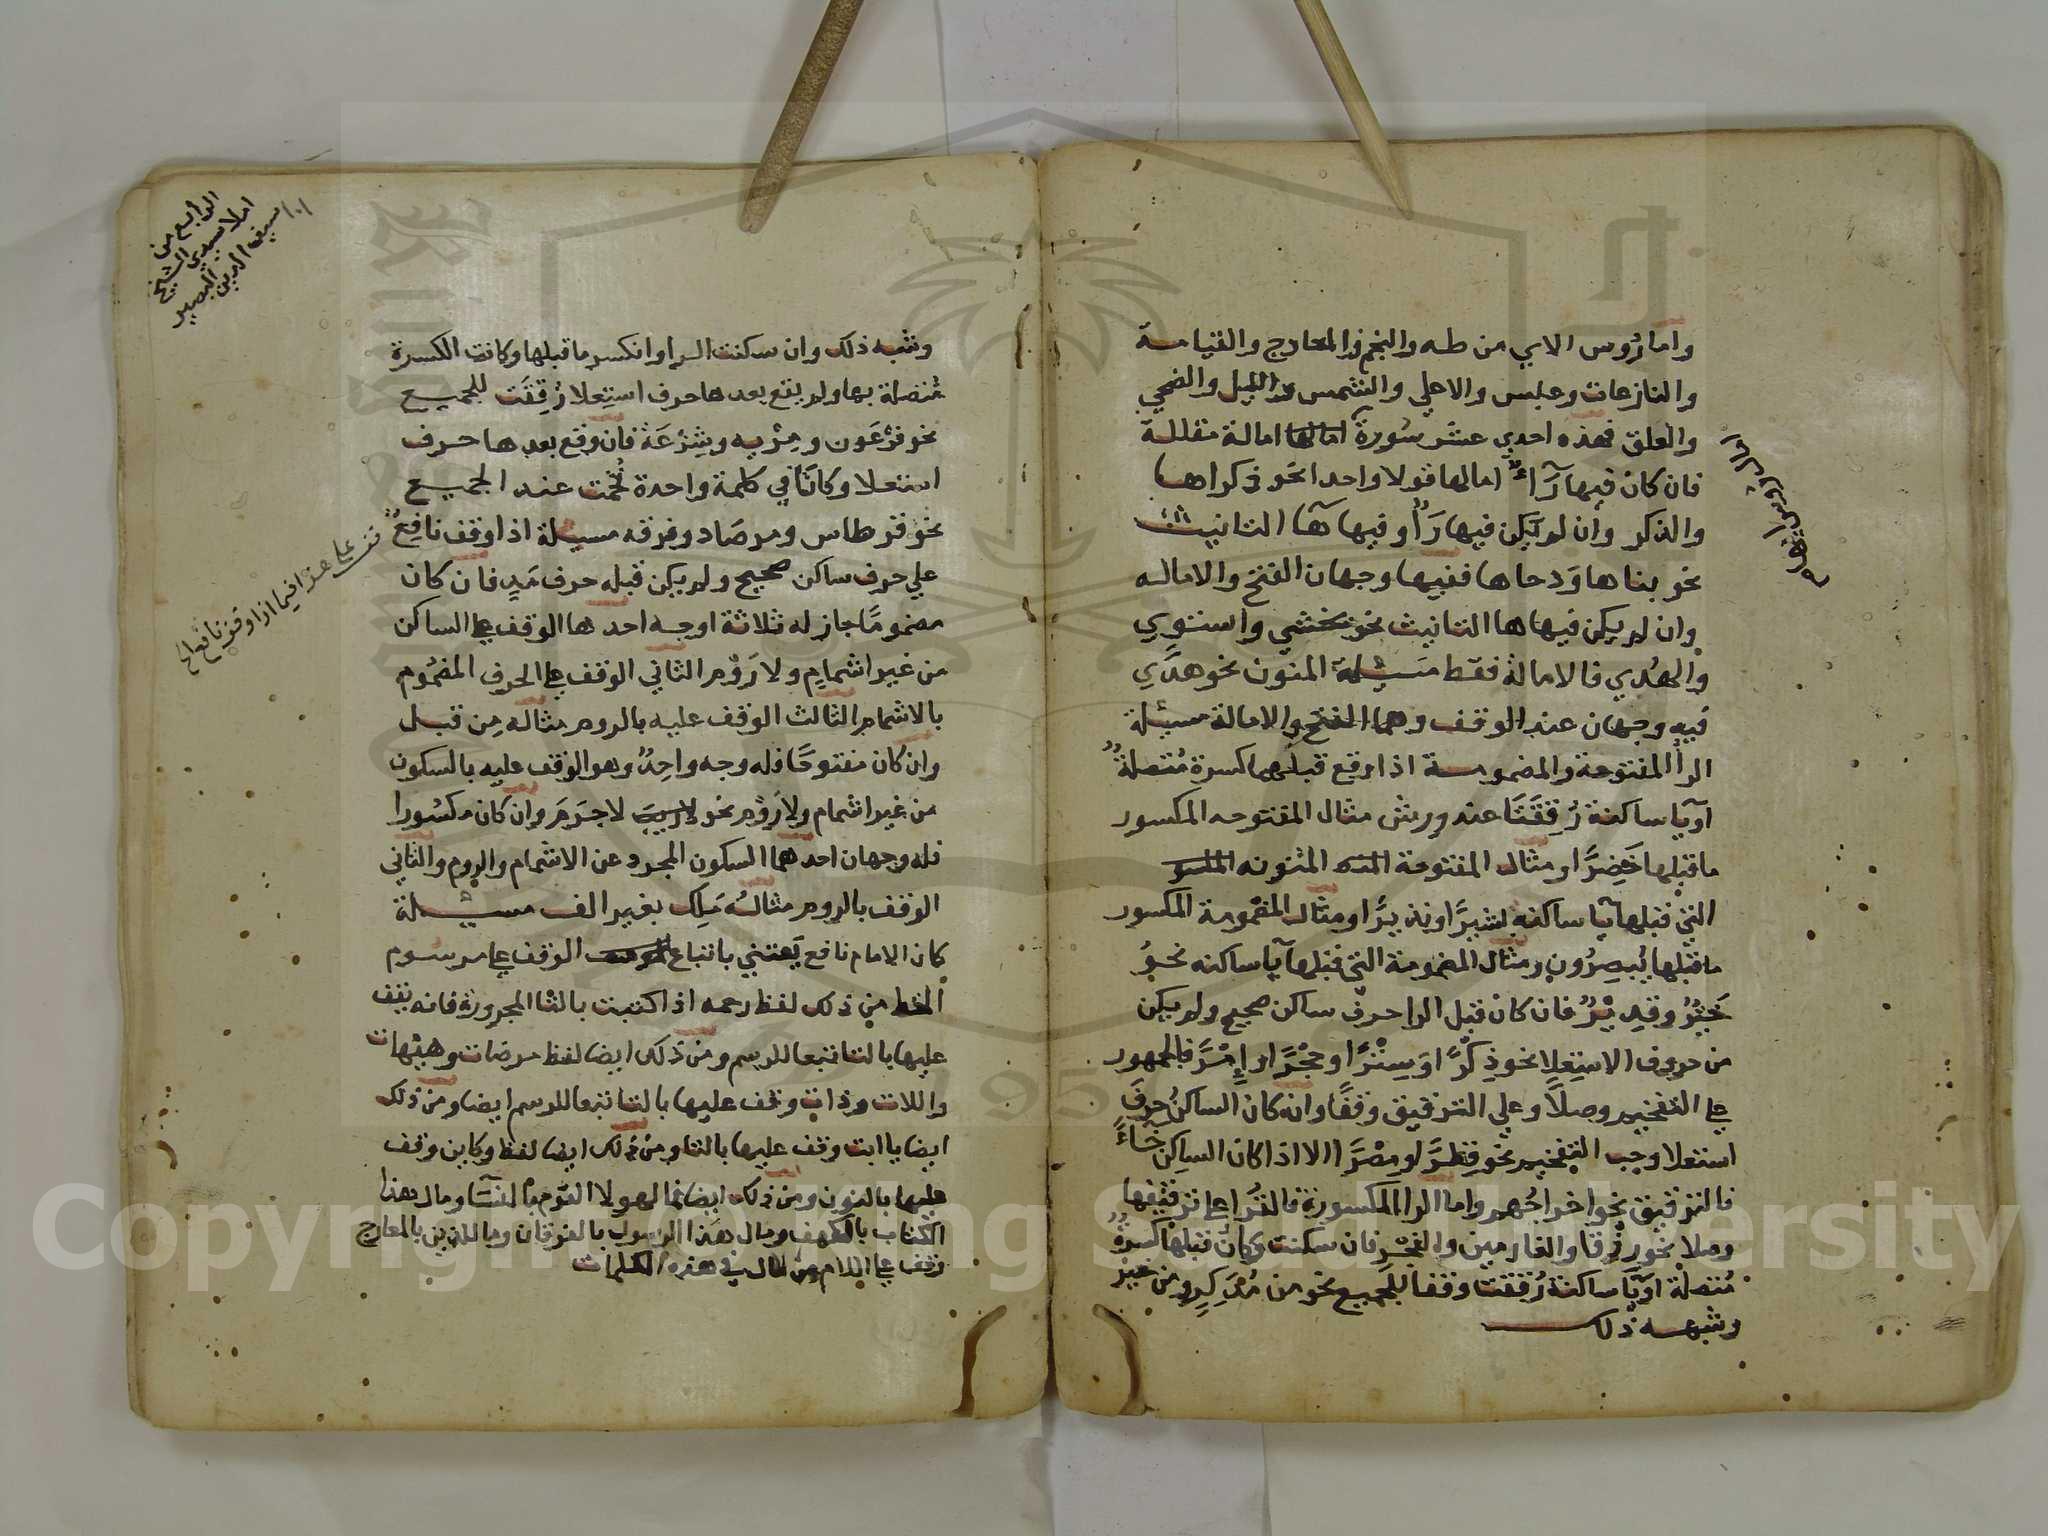 واما رُوس الاي من طه والنجم والمعارج والقيامة
والنازعات وعبس والاعلي والشمس والليل والضحي
والعلق فهذه احدي عشر سُورة امالها امالة مقللة
فان كان فيها رآء امالها قولا واحدا نحو ذكراها
والذكر وان لم يكن فيها رَاُ وفيها هآ التانيث
نحو بناها وَدحاها ففيها وجهان الفتح والاماله
وان لم يكن فيها ها التانيث نحو يخشي واستوي
والهُدي فالامالة فقط مسيلة المنون نحو هدًي
فيه وجهان عند الوقف وهما الفتح والامالة مسيلة
الرا المفتوحة والمضمومة اذا وقع قبلهما كسرة مُتصلةٌ
اويا ساكنة رُقِقَتَا عند ورش مثال المفتوحه المكسور
ما قبلها خَضِرًا ومثال المفتوحة المنونه
التي قبلها يا ساكنه بشيرًا ونذيرًا ومثال المضمومة المكسور
ما قبلها يُبصِرُون ومثال المضمومة التي قبلها يا ساكنه نحوُ
خَيْرُ وقديرُ فان كان قبل الرا حرف ساكن صحيح ولم يكن
من حروف الاستعلا نحو ذِكْرًا وَسِتْرًا وحِجْرًا وإِمْرًا فالجمهور
علي التفخيم وصلاً وعلي الترقيق وَقفًا وان كان الساكنُ حرفَ
استعلا وجب التفخيم نحو قِطْرًا ومِصْرًا الا اذا كان الساكن خَاءً
فالترقيق نحو اخراجُهم واما الرا المكسورة فالقُرا علي ترقيقها
وصلا نحو رِزقا والغارمين والفَجْرِ فان سكنت وكان قبلها كسرةٌ
مُتصلة اويا ساكنة رُققت وقفا للجميع نحو من مُدَّكِرٍ ومن خير
وشبهه ذلك
امال رؤس الاي
١٠١
الرابع من
املا سيدي الشيخ
سيف الدين البصير
وشبه ذلك وان سكنت الرا وانكسر ما قبلها وكانت الكسرة
مُتصلة بها ولم يقع بعدها حرف استِعلا رُقِقَت للجميع
نحو فِرْعَون ومِرْيه وشِرْعَة فان وقع بعدها حرف
استعلا وكانَا في كلمة واحدة فُخِّمت عند الجميع
نحو قرطاس ومرصَاد وفرقه مسيلة اذا وقف نافِعٌ
علي حرف ساكن صحيح ولم يكن قبله حرف مَدٍ فان كان
مضمومًا جاز له ثلاثة اوجه احدها الوقف علي الساكن
من غير اشمامٍ ولا رَوْم الثاني الوقف علي الحرف المضمُوم
بالاشمام الثالث الوقف عليه بالروم مثاله مِن قبل
وان كان مفتوحًا فله وجه واحِدٌ وهو الوقف عليه بالسكون
من غير اشمام ولا رَوْم نحو لا ريب لا جَرَمَ وان كان مكسُورا
فله وجهان احدهما السكون المجرد عن الاشمام والروم والثاني
الوقف بالروم مثالهُ مَلِكِ بغير الف مسيلة
كان الامام نافع يَعتني باتباع الوقف علي مرسوم
الخط من ذلك لفظ رحمه اذا كتبت بالتا المجرورة فانه يقف
عليها بالتا تبعا للرسم ومن ذلك ايضا لفظ مرضات وهيهات
واللات وذات وقف عليها بالتا تبعا للرسم ايضا ومن ذلك
ايضا يا ابت وقف عليها بالتا ومن ذلك ايضا لفظ وكاين وقف
عليها بالنون ومن ذلك ايضا فمال هولا القوم بالنسا ومال هذا
الكتاب بالكهف ومال هذا الرسول بالفرقان ومال الذين بالمعارج
وقف علي اللام من مال في هذه الكلمات
قف علي هذا فيما اذا وقف نافع الخ
Copyright © King Saud University